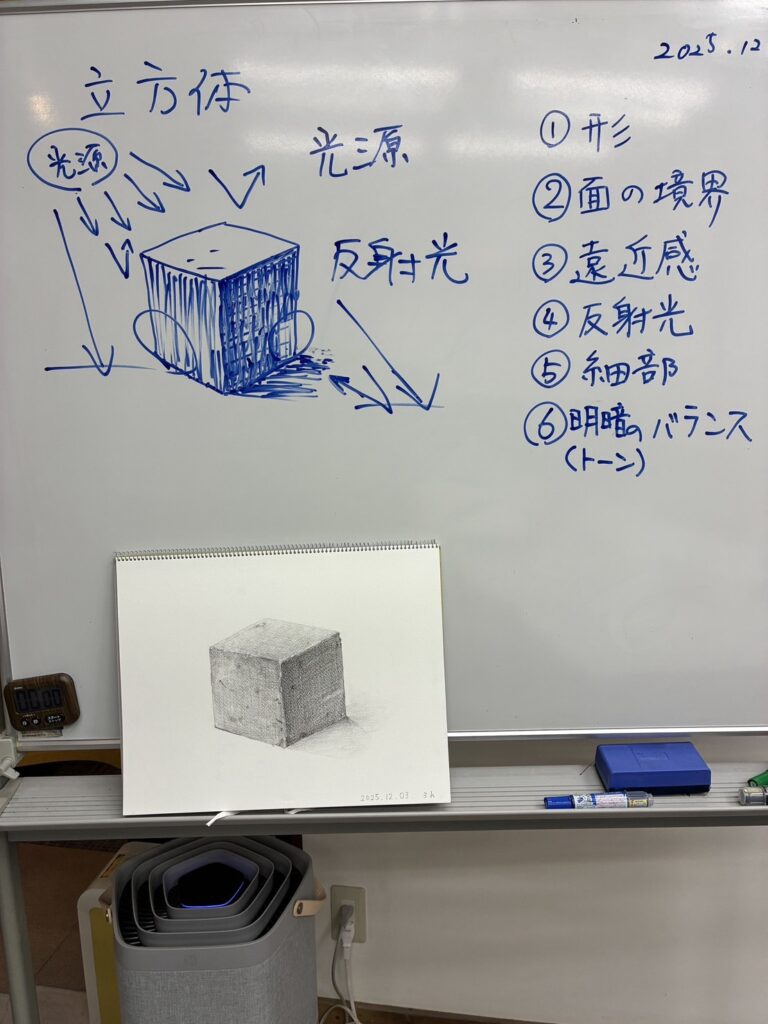 2025.12
立方体
光源
光源
反射光
① 形
② 面の境界
③ 遠近感
④ 反射光
⑤ 細部
⑥ 明暗のバランス
(トーン)
2025.12.03 3h